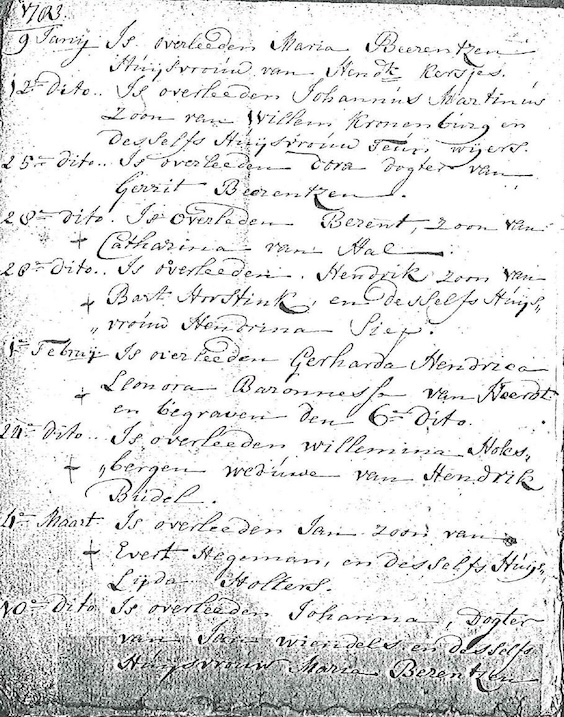 1783
9 Janrij Is overleeden Maria Beerentzen
Huijsvrouw van Hendk Kersjes.
12n dito.. Is overleeden Johannus Martinus
zoon van Willem Kronenburg en
desselfs Huijsvrouw Teun wijers.
25n dito.. Is overleeden Dora dogter van
Gerrit Beerentzen.
28n dito. Is overleden Berent, zoon van
+ Catharina van Hal.
28n dito.. Is overleeden. Hendrik zoon van
+ Bart Horstink, en desselfs Huijs„
„vrouw Hendrina Siep.
1n Februij Is overleeden Gerharda Hendrica
+ Leonora Baronnesse van Heerdt
en begraven den 6n dito.
24n dito.. Is overleeden willemina Hoks„
+ „bergen weduwe van Hendrik
Budel.
4n Maart Is overleeden Jan zoon van
+ Evert Hegeman, en desselfs Huijs„
Lijda Holters.
10n dito Is overleeden Johanna, Dogter
van Jan wiendels en desselfs
Huijsvrouw Maria Berentzen